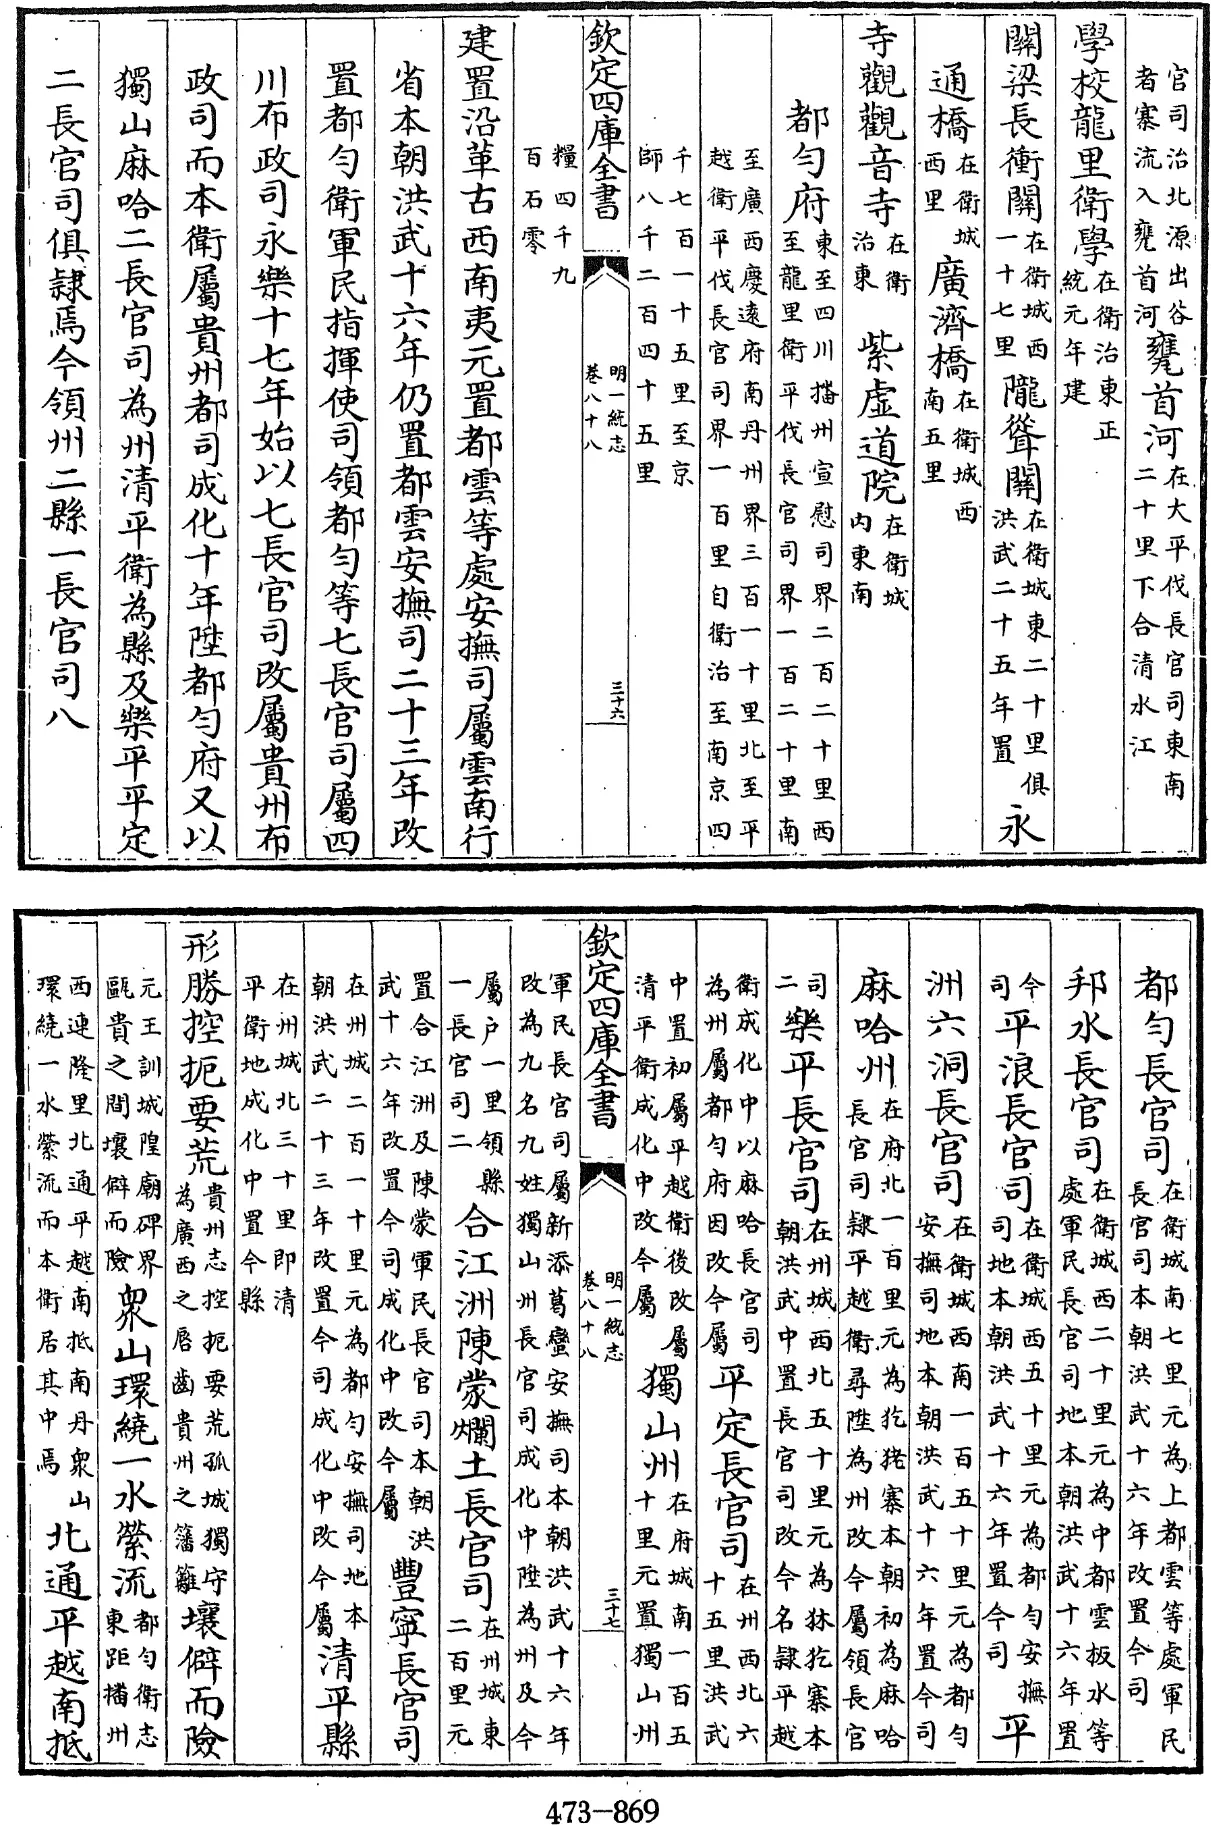 官司治北源出谷甕首河在大平伐長官司東南
者寨流入甕首河二十里下合清水江
學校龍里衛學在衛治東正
統元年建
關梁長衝關在衛城西隴聳關在衛城東二十里俱永
一十七里洪武二十五年置
通橋在衛城廣濟橋在衛城西
西里南五里
寺觀觀音寺在衛紫虛道院在衛城
治東内東南
都勻府東至四川播州宣慰司界二百二十里西
至龍里衛平伐長官司界一百二十里南
至廣西慶遠府南丹州界三百一十里北至平
越衛平伐長官司界一百里自衛治至南京四
千七百一十五里至京
師八千二百四十五里
欽定四庫全書
明一統志
卷八十八
三十六
糧四千九
百石零
建置沿革古西南夷元置都雲等處安撫司屬雲南行
省本朝洪武十六年仍置都雲安撫司二十三年改
置都勻衛軍民指揮使司領都勻等七長官司屬四
川布政司永樂十七年始以七長官司改屬貴州布
政司而本衛屬貴州都司成化十年陞都勻府又以
獨山麻哈二長官司為州清平衛為縣及樂平平定
二長官司俱隸焉今領州二縣一長官司八
都勻長官司在衛城南七里元為上都雲等處軍民
長官司本朝洪武十六年改置今司
邦水長官司在衛城西二十里元為中都雲板水等
處軍民長官司地本朝洪武十六年置
今平浪長官司在衛城西五十里元為都勻安撫平
司司地本朝洪武十六年置今司
洲六洞長官司在衛城西南一百五十里元為都勻
安撫司地本朝洪武十六年置今司
麻哈州在府北一百里元為犵狫寨本朝初為麻哈
長官司隸平越衛尋陞為州改今屬領長官
司樂平長官司在州城西北五十里元為狇犵寨本
二朝洪武中置長官司改今名隸平越
衛成化中以麻哈長官司平定長官司在州西北六
為州屬都勻府因改今屬十五里洪武
中置初屬平越衛後改屬獨山州在府城南一百五
清平衛成化中改今屬十里元置獨山州
欽定四庫全書
明一統志
卷八十八
三十七
軍民長官司屬新添葛蠻安撫司本朝洪武十六年
改為九名九姓獨山州長官司成化中陞為州及今
屬户一里領縣合江洲陳蒙爛土長官司在州城東
一長官司二二百里元
置合江洲及陳蒙軍民長官司本朝洪豐寧長官司
武十六年改置今司成化中改今屬
在州城二百一十里元為都勻安撫司地本清平縣
朝洪武二十三年改置今司成化中改今屬
在州城北三十里即清
平衛地成化中置今縣
形勝控扼要荒貴州志控扼要荒孤城獨守壤僻而險
為廣西之唇齒貴州之籓籬
元王訓城隍廟碑界衆山環繞一水縈流都勻衛志
甌貴之間壤僻而險東距播州
西連隆里北通平越南抵南丹衆山北通平越南抵
環繞一水縈流而本衛居其中焉
473-869